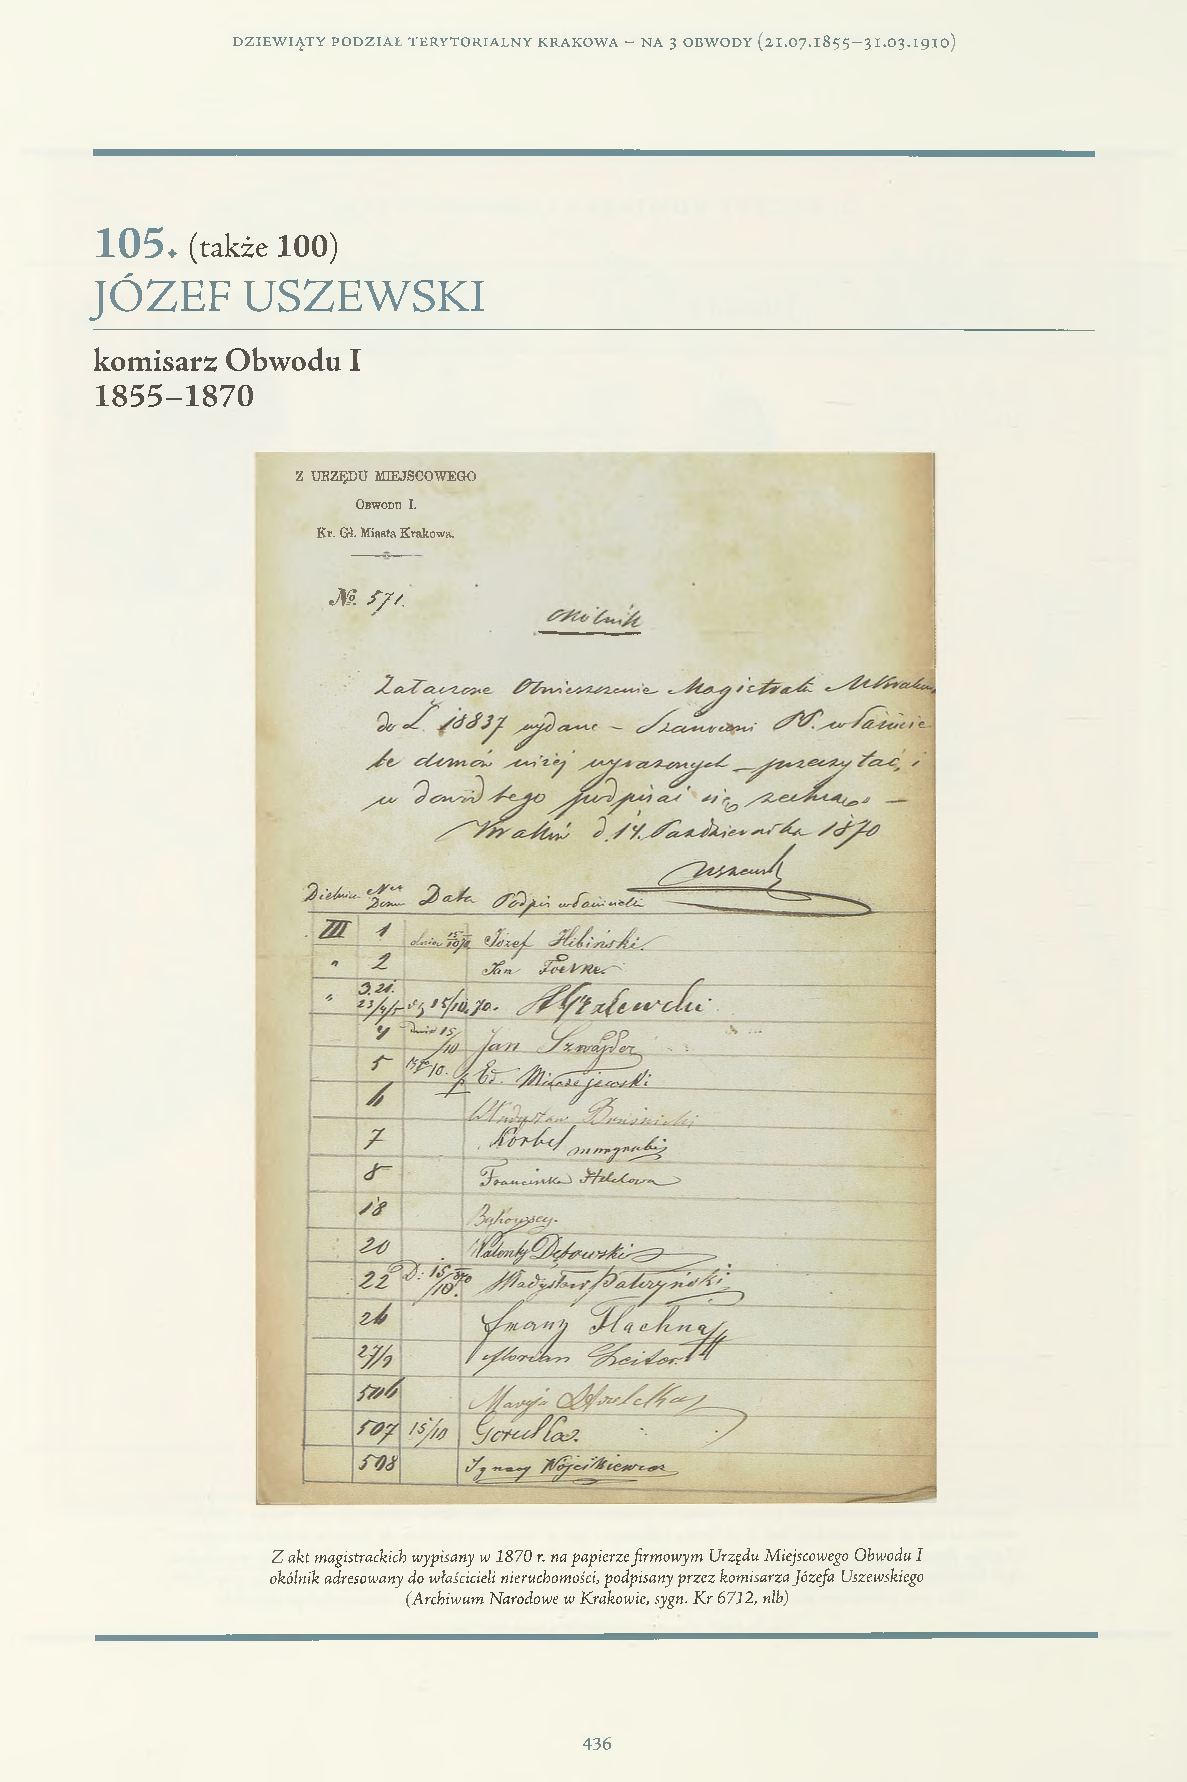 DZIEWIĄTY PODZIAŁ TERYTORIALNY KRAKOWA – NA 3 OBWODY (21.07.1855–31.03.1910)
105. (także 100)
JÓZEF USZEWSKI
komisarz Obwodu I
1855–1870
Z URZĘDU MIEJSCOWEGO
Obwodu I.
Kr. Gł. Miasta Krakowa.
№ 571.
Okólnik
Załączone Obwieszczenie Magistratu M Krakowa
do L. 18837 wydane – Szanowni PP. właścicie
le domów niżej wyrażonych – przeczytać, i
w dowód tego podpisać się zechcą –
Kraków d. 14. Października 1870
Uszewski
Dzielnica Ner Domu Data Podpis właścicieli
III 1 dnia 15/10 Józef Hibiński
" 2 Jan
" 3. 21. 15/10 70.
4 dnia 15/10 Jan Szwajder
5 Ed. Mikaszejewski
6 Władysław
7 Korbel
8 Franciszka Helclowa
18 Bykowscy.
20 Walenty Dębowski
22 D: 15/10 870 Władysław Patrzyński
26 Franz Flachna
27/9 Florian
506 Maryja
507 15/10
508 Ignacy Wójcikiewicz
Z akt magistrackich wypisany w 1870 r. na papierze firmowym Urzędu Miejscowego Obwodu I
okólnik adresowany do właścicieli nieruchomości, podpisany przez komisarza Józefa Uszewskiego
(Archiwum Narodowe w Krakowie, sygn. Kr 6712, nlb)
436